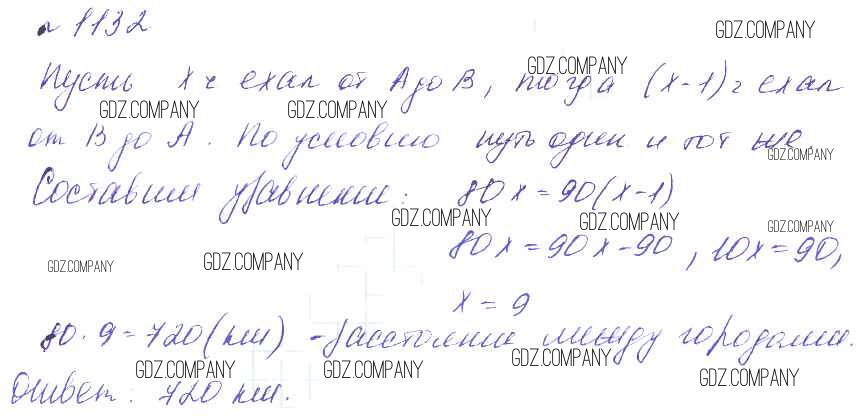 № 1132
GDZ.COMPANY
Пусть x ч ехал от A до B, тогда (x-1) ч ехал
GDZ.COMPANY
GDZ.COMPANY GDZ.COMPANY
от B до A. По условию путь один и тот же.
GDZ.COMPANY
Составим уравнение: 80x=90(x-1)
GDZ.COMPANY GDZ.COMPANY GDZ.COMPANY
80x=90x-90, 10x=90,
GDZ.COMPANY GDZ.COMPANY
x=9
80·9=720(км) - расстояние между городами.
GDZ.COMPANY GDZ.COMPANY GDZ.COMPANY GDZ.COMPANY
Ответ: 720 км.